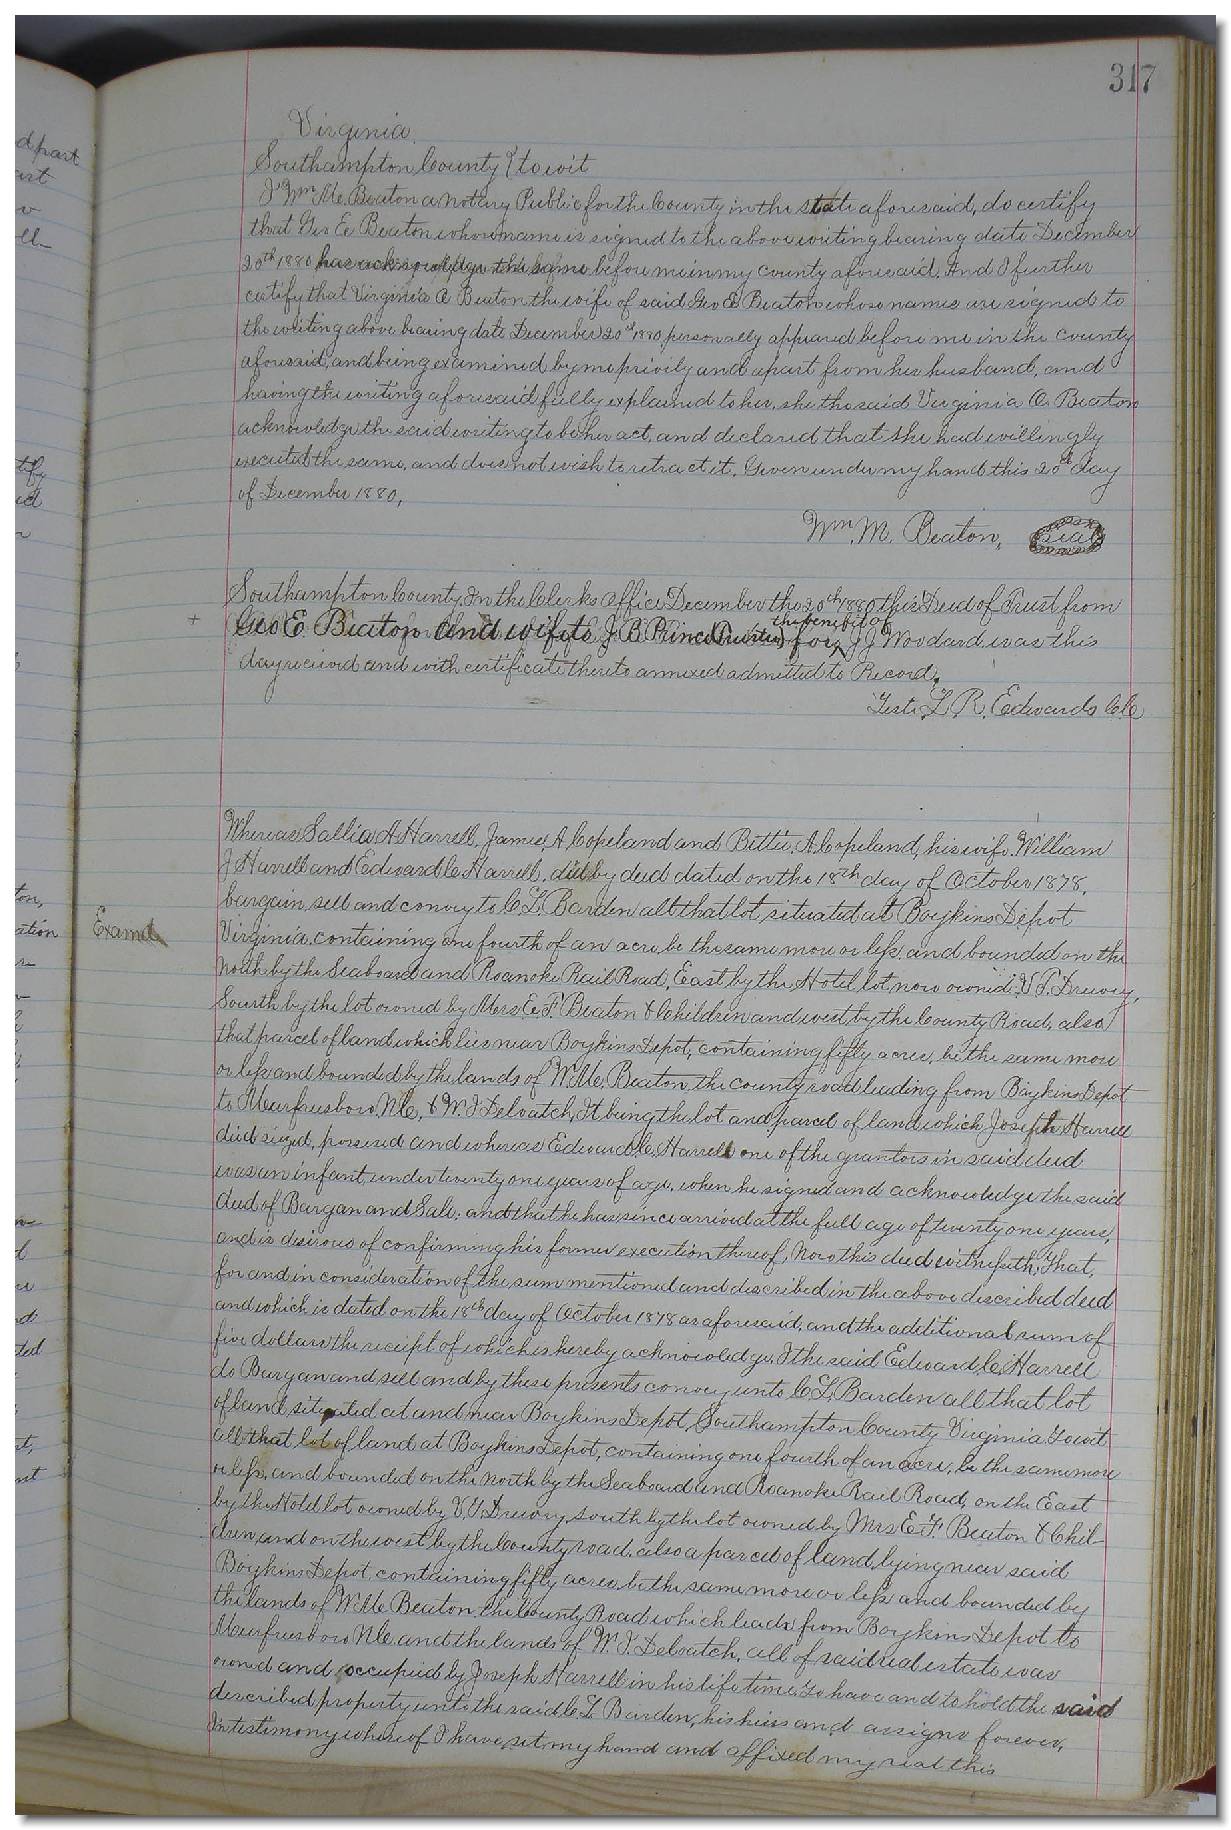 317
Virginia
Southampton County } to wit
I Wm M. Beaton a Notary Public for the County in the state aforesaid, do certify
that Geo E Beaton whose name is signed to the above writing bearing date December
20th 1880 has acknowledge the same before me in my county aforesaid. And I further
certify that Virginia A Beaton the wife of said Geo E Beaton whose names are signed to
the writing above bearing date December 20th 1880 personally appeared before me in the county
aforesaid, and being examined by me privily and apart from her husband, and
having the writing aforesaid fully explained to her, she the said Virginia A. Beaton
acknowledge the said writing to be her act, and declared that she had willingly
executed the same, and does not wish to retract it. Given under my hand this 20th day
of December 1880,
Wm. M. Beaton, Seal
Southampton County, In the Clerks office December the 20th 1880 this Deed of Trust from
the benefit of
+ Geo E Beaton and wife to J. B. Prince (Trustee) for J J Woodard was this
day received and with certificate thereto annexed admitted to Record,
Teste L. R. Edwards C.C.
Whereas Sallie A Harrell, James A Copeland and Bettie A Copeland, his wife William
J Harrell and Edward C. Harrell, did by deed dated on the 18th day of October 1878,
bargain sell and convey to C L Barden all that lot, situated at Boykins Depot
Examd
Virginia, containing one fourth of an acre, be the same more or less, and bounded on the
North by the Seaboard and Roanoke Rail Road, East by the Hotel lot, now owned V. T. Drewry,
South by the lot owned by Mrs E. F. Beaton & Children and west by the County Road, also
that parcel of land which lies near Boykins Depot, containing fifty acres, be the same more
or less and bounded by the lands of W. M. Beaton, the county road leading from Boykins Depot
to Murfreesboro N.C, & W. J Deloatch, It being the lot and parcel of land which Joseph Harrell
died siezed, possessed and whereas Edward C. Harrell one of the grantors in said deed
was an infant, under twenty one years of age, when he signed and acknowledge the said
deed of Bargan and Sale; and that he has since arrived at the full age of twenty one years,
and is desirous of confirming his former execution thereof, Now this deed witnesseth, That,
for and in consideration of the sum mentioned and described in the above described deed
and which is dated on the 18th day of October 1878 as aforesaid, and the additional sum of
five dollars the receipt of which is hereby acknowledge, I the said Edward C, Harrell
do Bargan and sell and by these presents convey unto C L, Barden all that lot
of land situated at and near Boykins Depot, Southampton County Virginia To wit
all that lot of land at Boykins Depot, containing one fourth of an acre, be the same more
or less, and bounded on the North by the Seaboard and Roanoke Rail Road, on the East
by the Hotel lot owned by V. T. Drewry, South by the lot owned by Mrs E. F. Beaton & Chil-
dren, and on the west by the County road, also a parcel of land lying near said
Boykins Depot, containing fifty acres, be the same more or less and bounded by
the lands of W. M. Beaton the County Road which leads from Boykins Depot to
Murfreesboro N.C. and the lands of W. J. Deloatch, all of said real estate was
owned and occupied by Joseph Harrell in his life time, To have and to hold the said
described property unto the said C. L Barden, his heirs and assigns forever,
In testimony whereof I have set my hand and affixed my seal this